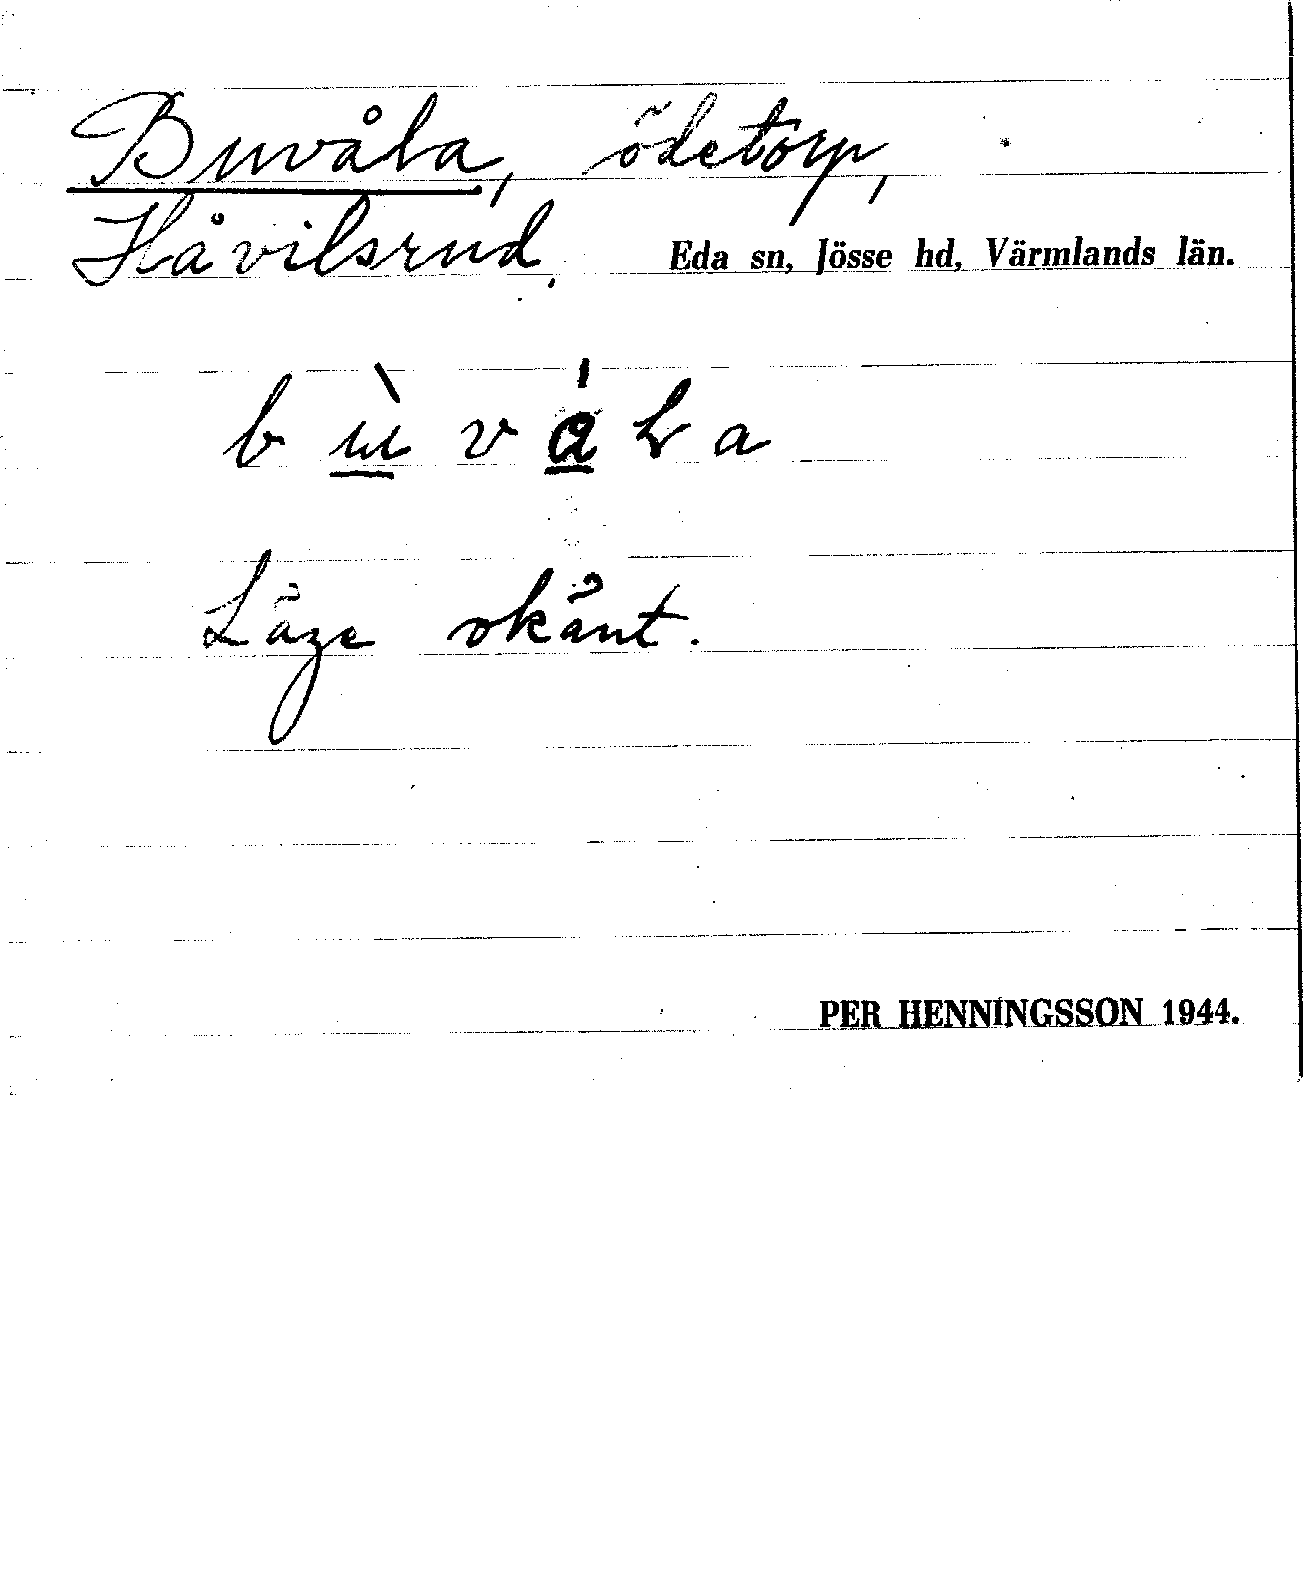 Buvåla, ödetorp,
Håvilsrud. Eda sn, Jösse hd, Värmlands län.
b ù v á L a
Läge okänt.
PER HENNINGSSON 1944.